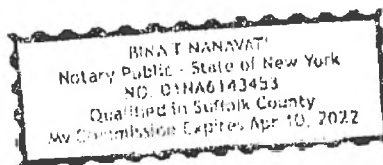 BINA T NANAVATI
Notary Public - State of New York
NO. 01NA6143453
Qualified in Suffolk County
My Commission Expires Apr 10, 2022